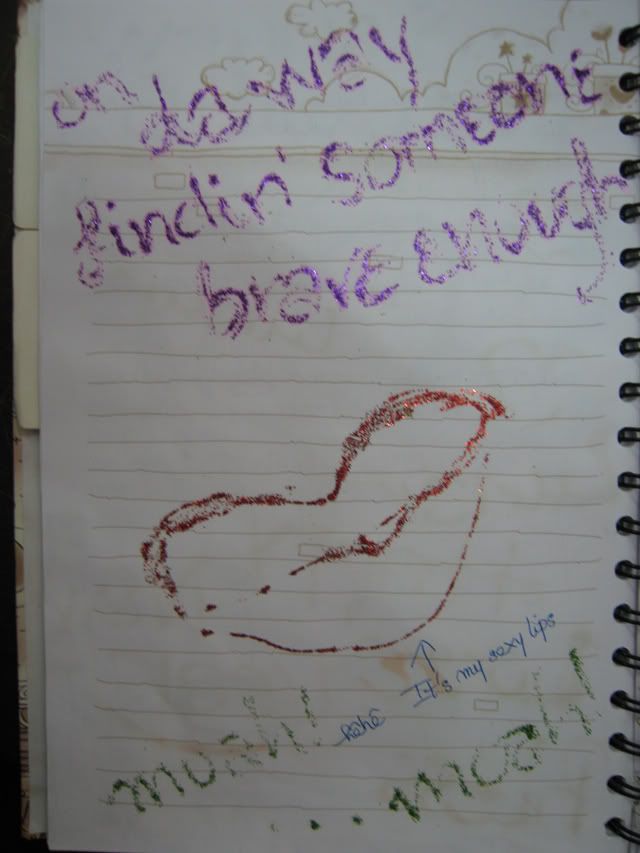 on da way
findin' someone
brave enough
It's my sexy lips
hehe
moah!!
...moah!!